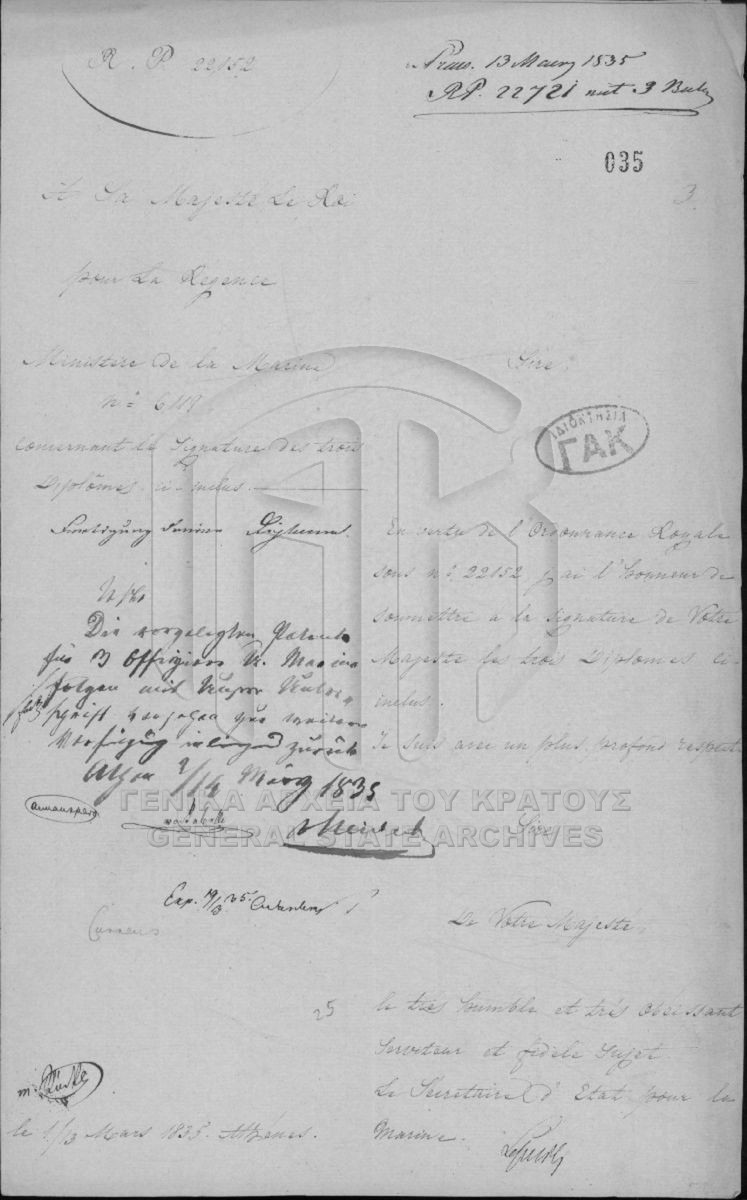 R. P. 22152
Praes. 13 März 1835
RP. 22721 mit 3 Beil.
035
3
A Sa Majesté Le Roi
pour La Regence
Ministere de la Marine
Sire,
n° 6119
ΙΔΙΟΚΤΗΣΙΑ
ΓΑΚ
concernant la Signature des trois
Diplômes ci-inclus.
En vertu de l'Ordonnance Royale
sous n° 22152, j'ai l'honneur de
soumettre a la signature de Votre
Majesté les trois Diplomes ci-
inclus.
Je suis avec un plus profond respect
Sire,
Die vorgelegten Patente
für 3 Offiziere der Marine
folgen mit Unserer Unter-
schrift versehen zur weitern
Verfügung anliegend zurück
Athen März 1835
Armansperg
ΓΕΝΙΚΑ ΑΡΧΕΙΑ ΤΟΥ ΚΡΑΤΟΥΣ
GENERAL STATE ARCHIVES
Exp. 19/3 35.
De Votre Majesté,
25
le très humble et très obéissant
Serviteur et fidèle Sujet.
Le Secretaire d'Etat pour la
Marine.
le 1/13 Mars 1835. Athènes.